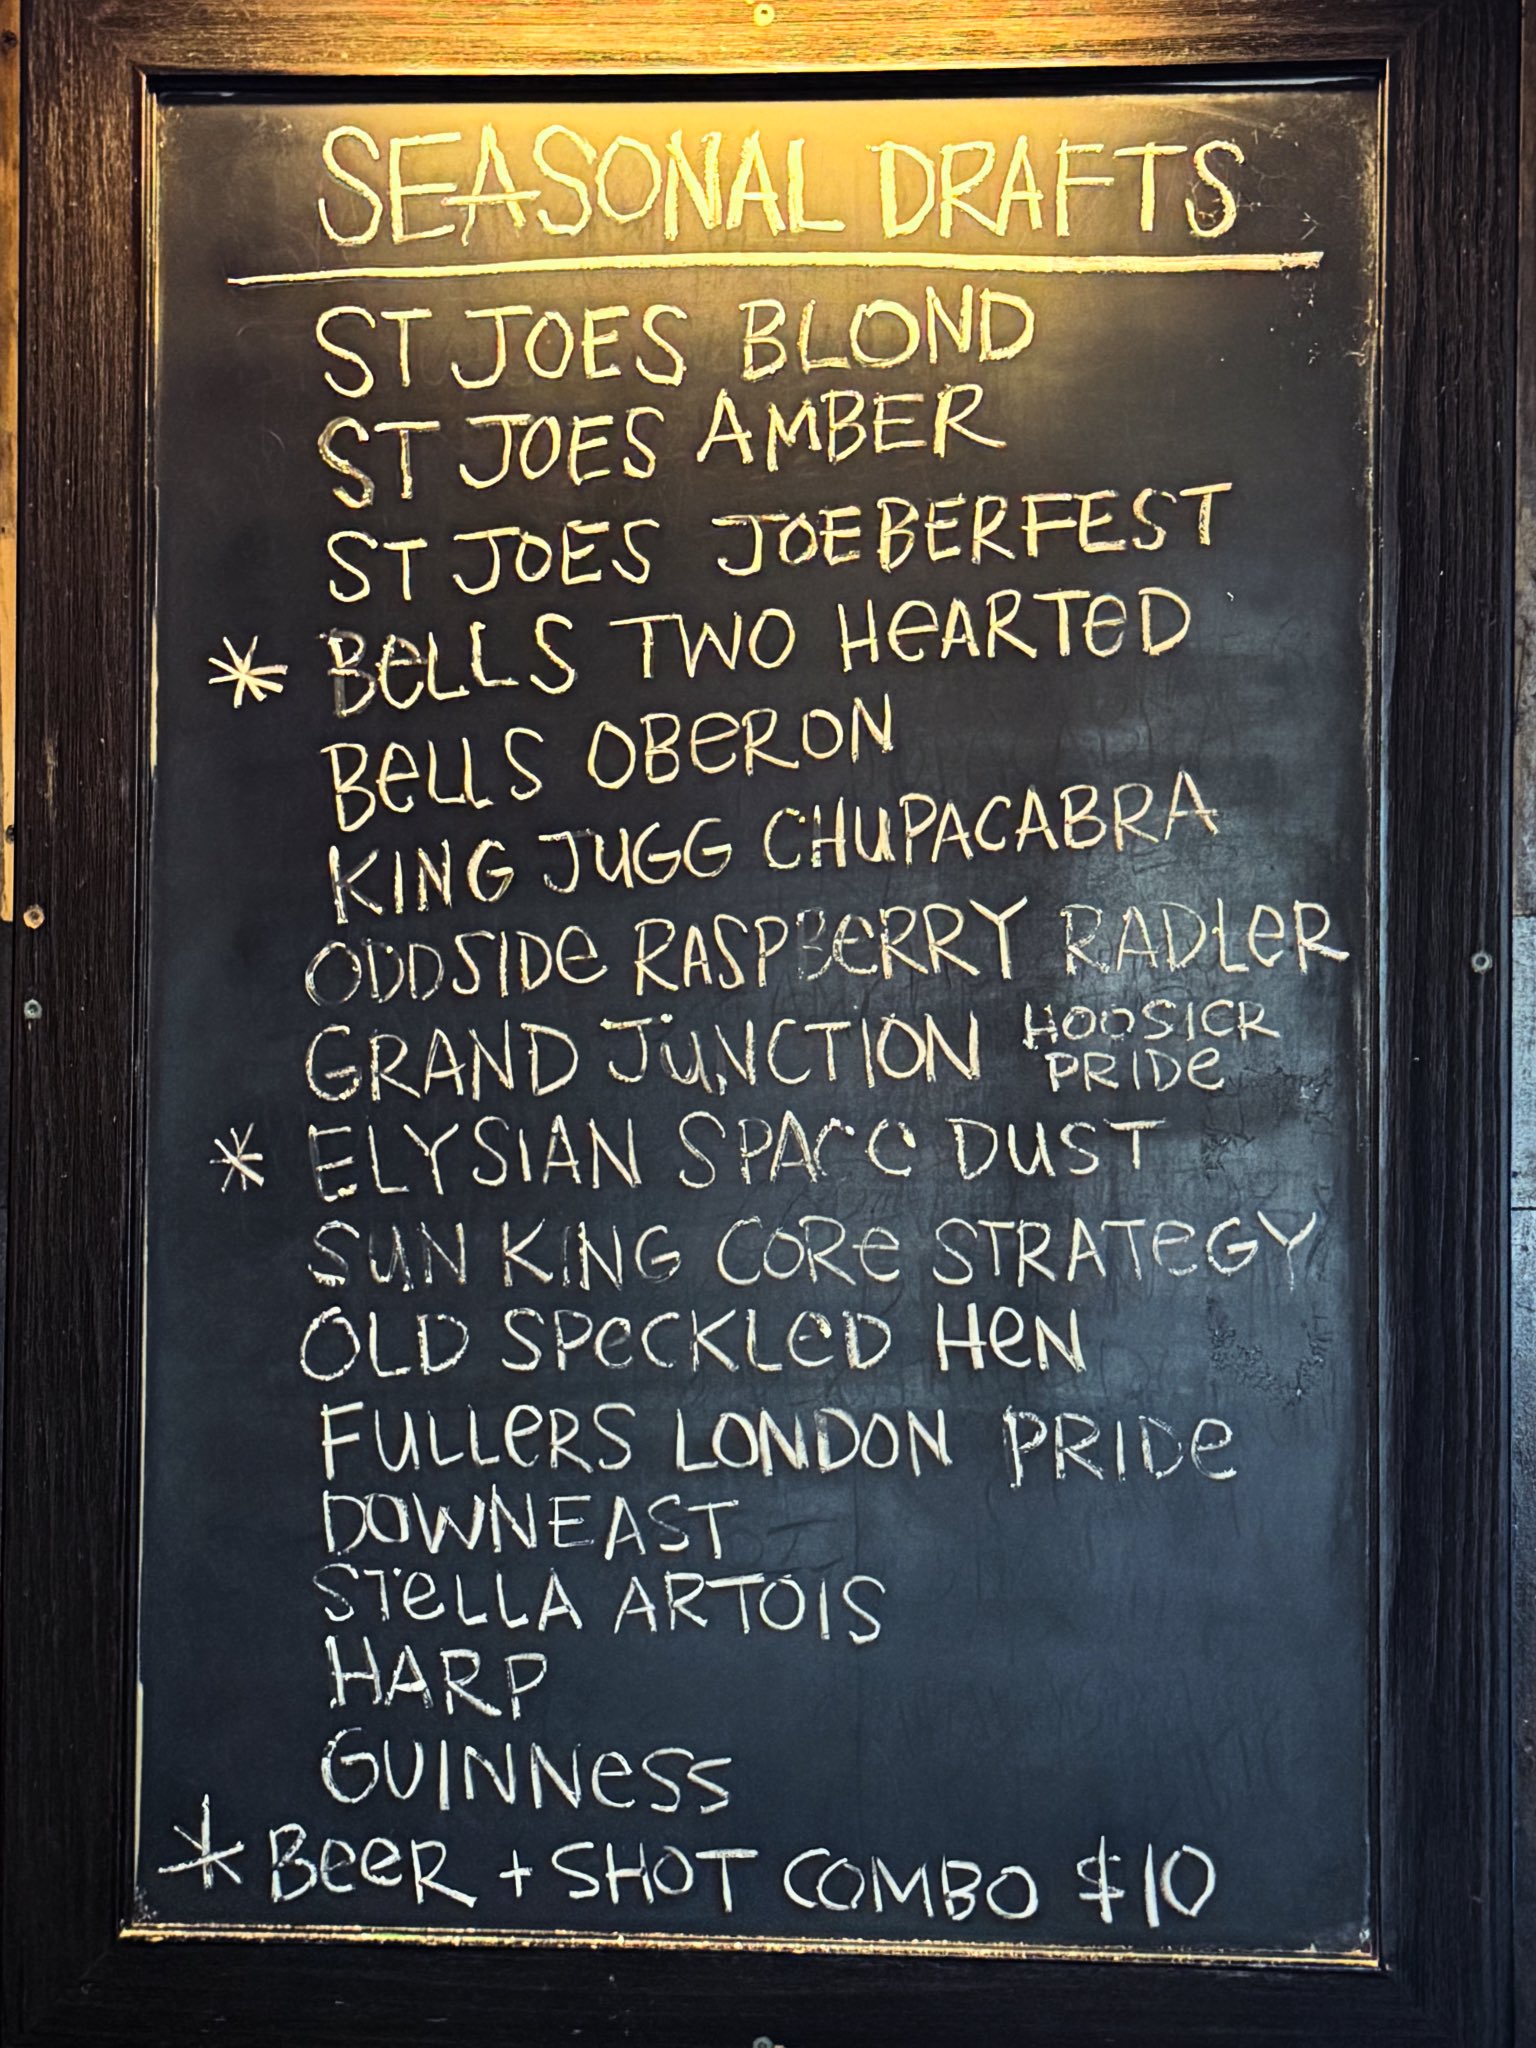 SEASONAL DRAFTS
ST JOES BLOND
ST JOES AMBER
ST JOES JOEBERFEST
* BELLS TWO HEARTED
BELLS OBERON
KING JUGG CHUPACABRA
ODDSIDE RASPBERRY RADLER
GRAND JUNCTION HOOSIER
PRIDE
* ELYSIAN SPACE DUST
SUN KING CORE STRATEGY
OLD SPECKLED HEN
FULLERS LONDON PRIDE
DOWNEAST
STELLA ARTOIS
HARP
GUINNESS
* BEER + SHOT COMBO $10